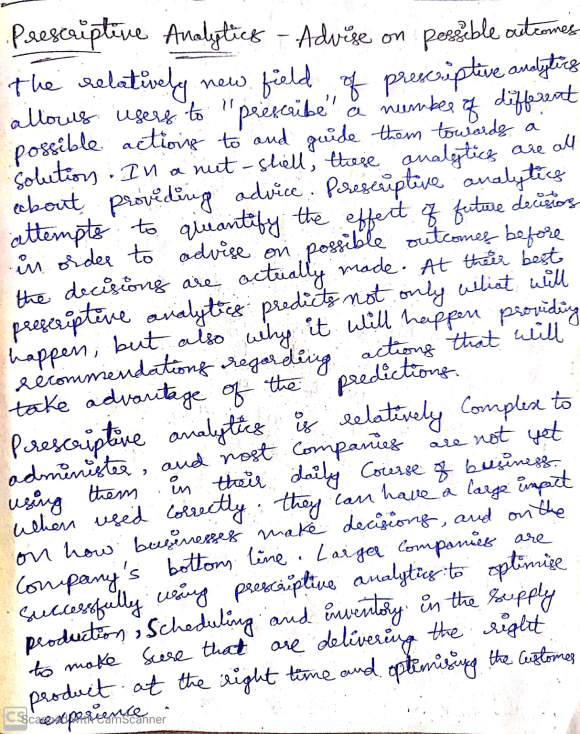 Prescriptive Analytics - Advise on possible outcomes
The relatively new field of prescriptive analytics
allows users to "prescribe" a number of different
possible actions to and guide them towards a
solution. In a nut-shell, these analytics are all
about providing advice. Prescriptive analytics
attempts to quantify the effect of future decisions
in order to advise on possible outcomes before
the decisions are actually made. At their best
prescriptive analytics predicts not only what will
happen, but also why it will happen providing
recommendations regarding actions that will
take advantage of the predictions.
Prescriptive analytics is relatively Complex to
administer, and most Companies are not yet
using them in their daily Course of business.
when used correctly. they can have a large impact
on how businesses make decisions, and on the
Company's bottom line. Larger Companies are
successfully using prescriptive analytics to optimise
production, Scheduling and inventory in the Supply
to make Sure that are delivering the right
product at the right time and optimising the Customer
experience.
CS Scanned with CamScanner